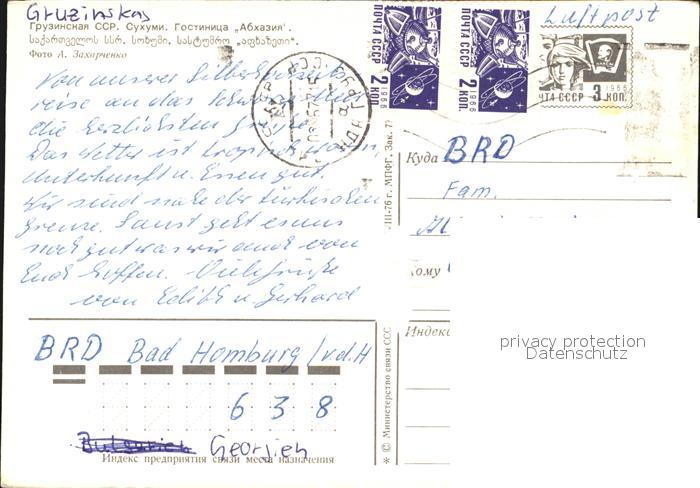 Gruzinskas
Грузинская ССР. Сухуми. Гостиница „Абхазия".
საქართველოს სსრ. სოხუმი, სასტუმრო „აფხაზეთი".
Фото А. Захарченко
Luftpost
ПОЧТА СССР
2 КОП.
1966
ПОЧТА СССР
2 КОП.
1966
1966
ЧТА СССР 3 КОП.
Von unserer Silberhochzeits
reise an das Schwarze Meer
die herzlichsten Grüße.
Das Wetter ist tropisch warm,
Unterkunft u. Essen gut.
Wir sind nahe der türkischen
Grenze. Sonst geht es uns
noch gut was wir auch von
Euch hoffen. Viele Grüße
von Edith u. Gerhard
Куда BRD
Fam.
Кому
Индекс
privacy protection
Datenschutz
BRD Bad Homburg / v.d.H
6 3 8
Georgien
Индекс предприятия связи места назначения
III-76 г. МПФГ. Зак. 7
* © Министерство связи СССР